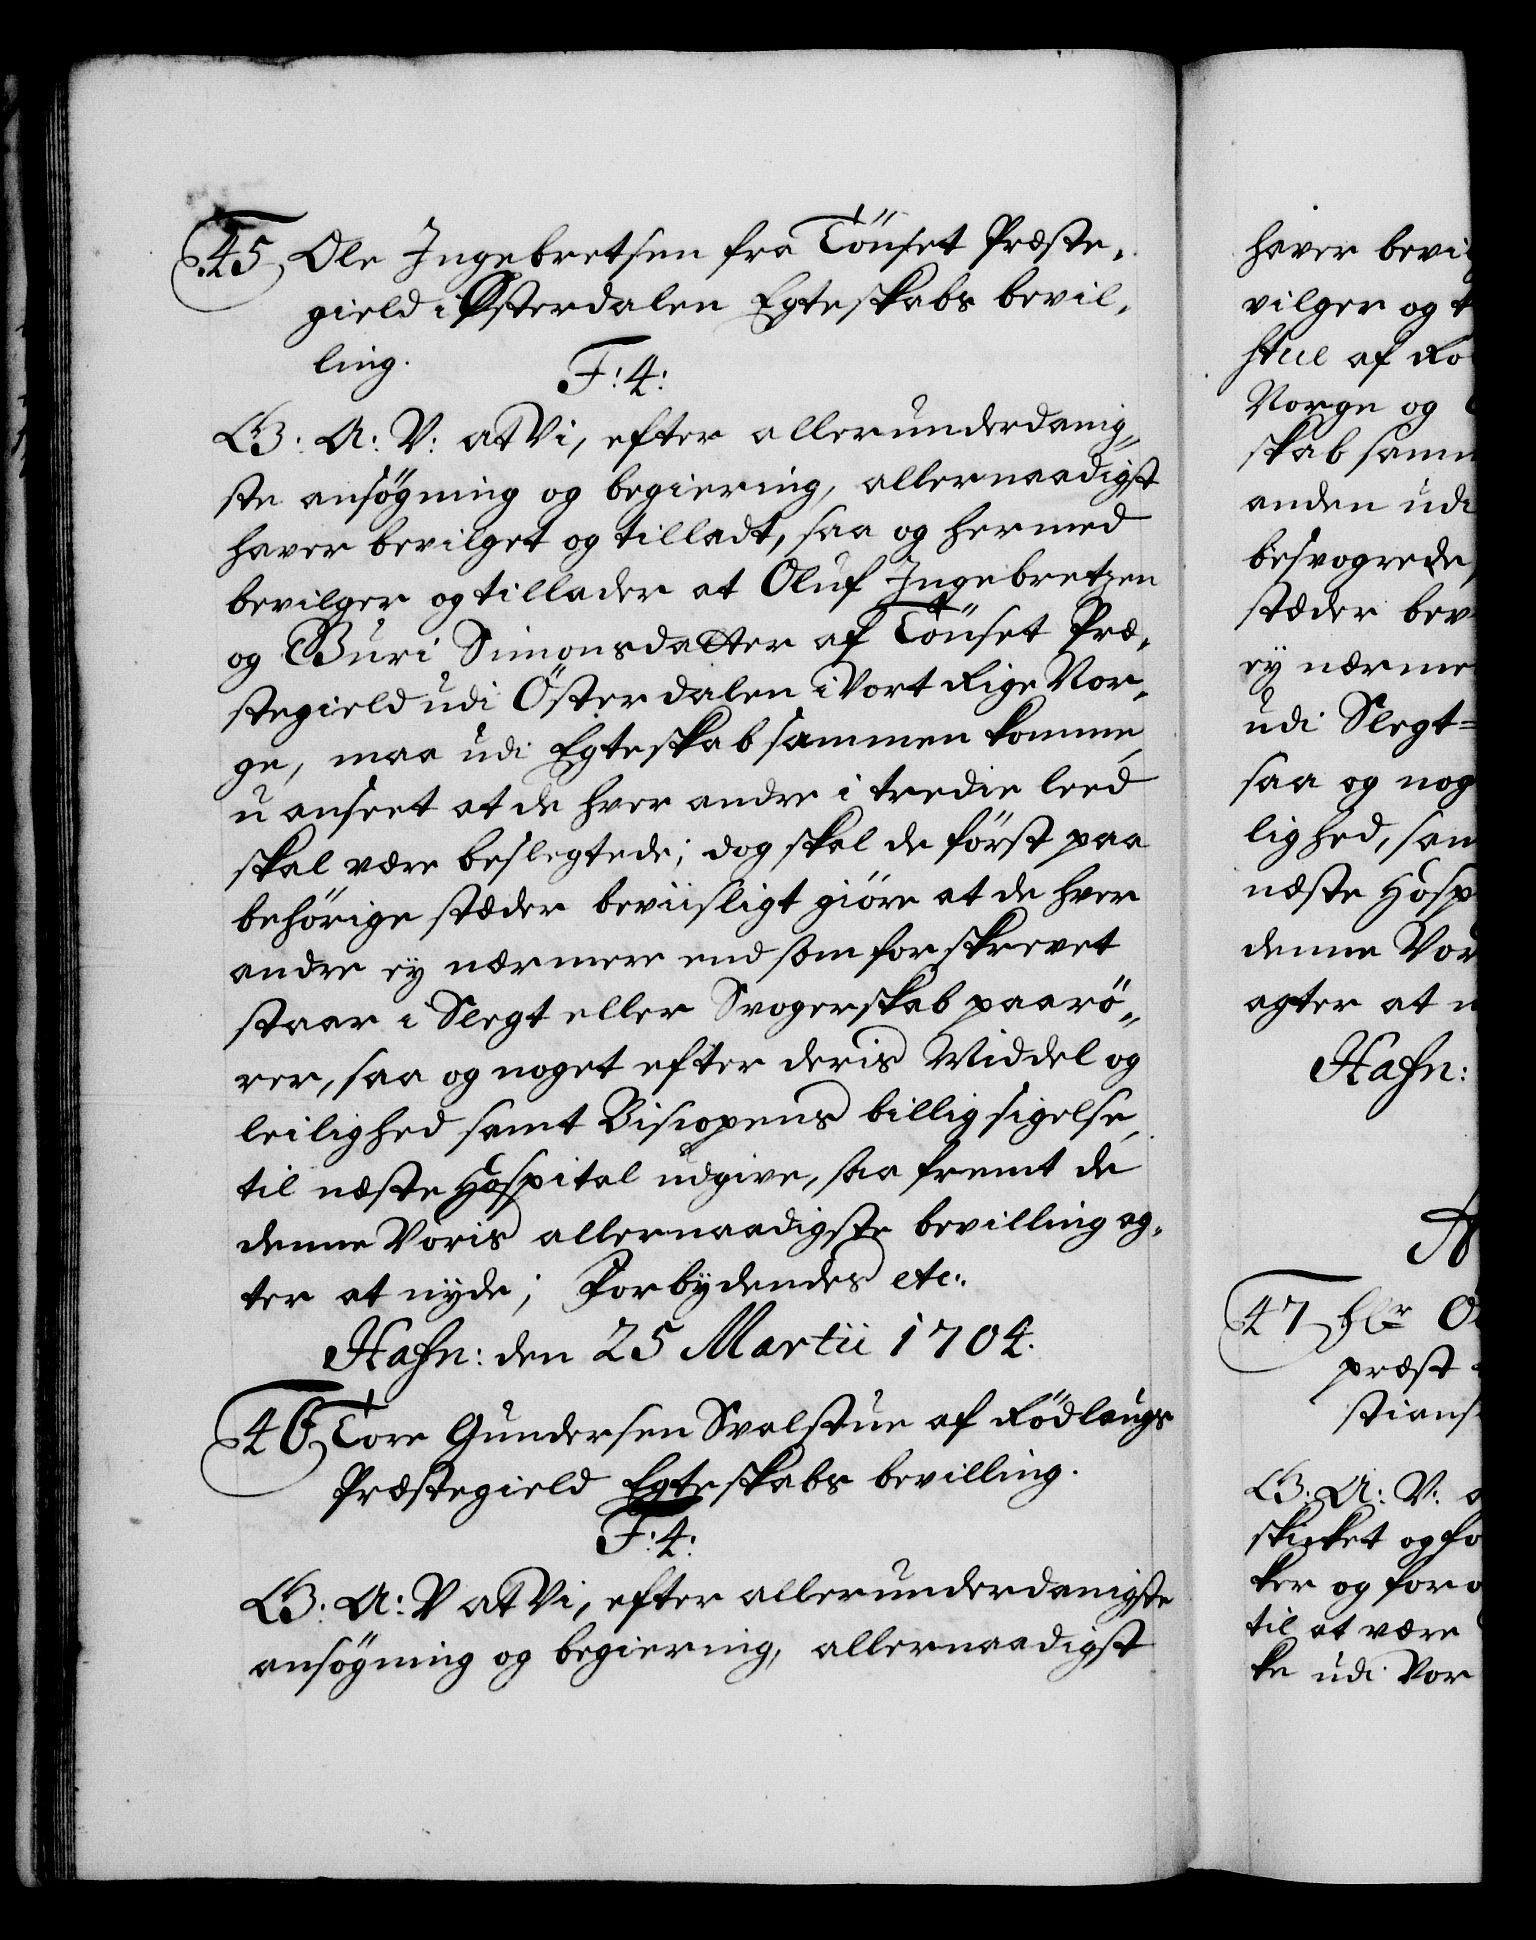 45 Ole Ingebretsen fra Tönset Præste-
gield i Østerdalen Egteskabs bevil-
ling.
F: 4:
G: A: V: at Vi, efter allerunderdanig-
ste ansögning og begiering, allernaadigst
haver bevilget og tilladt, saa og hermed
bevilger og tillader at Oluf Ingebretzen
og Guri Simonsdatter af Tönset Præ-
stegield udi Österdalen i Vort Rige Nor-
ge, maa udi Egteskab sammen komme,
u anseet at de hver andre i tredie leed
skal være beslegtede; dog skal de först paa
behörige stæder beviisligt giöre at de hver
andre ey nærmere end som forskrevet
staar i Slegt eller Svogerskab paarö-
rer, saa og noget efter deris Middel og
leilighed samt Biscopens billigsigelse,
til næste Hospital udgive, saa fremt de
denne Voris allernaadigste bevilling ag-
ter at nyde; Forbydendes etc:
Hafn: den 25 Martii 1704.
46 Tore Gundersen Svalstue af Rödlaugs
Præstegield Egteskabs bevilling.
F: 4:
G: A: V at Vi, efter allerunderdanigste
ansögning og begiering, allernaadigst
haver
vilger og
stue af
Norge og
skab
anden udi
besvogrede,
stæder
ey nærme
udi Slegt=
saa og nog
lighed,
næste
denne
agter at
Hafn:
47 Hr
præst
G: A: V:
skicket og
ker og
til at være
ke udi Vor